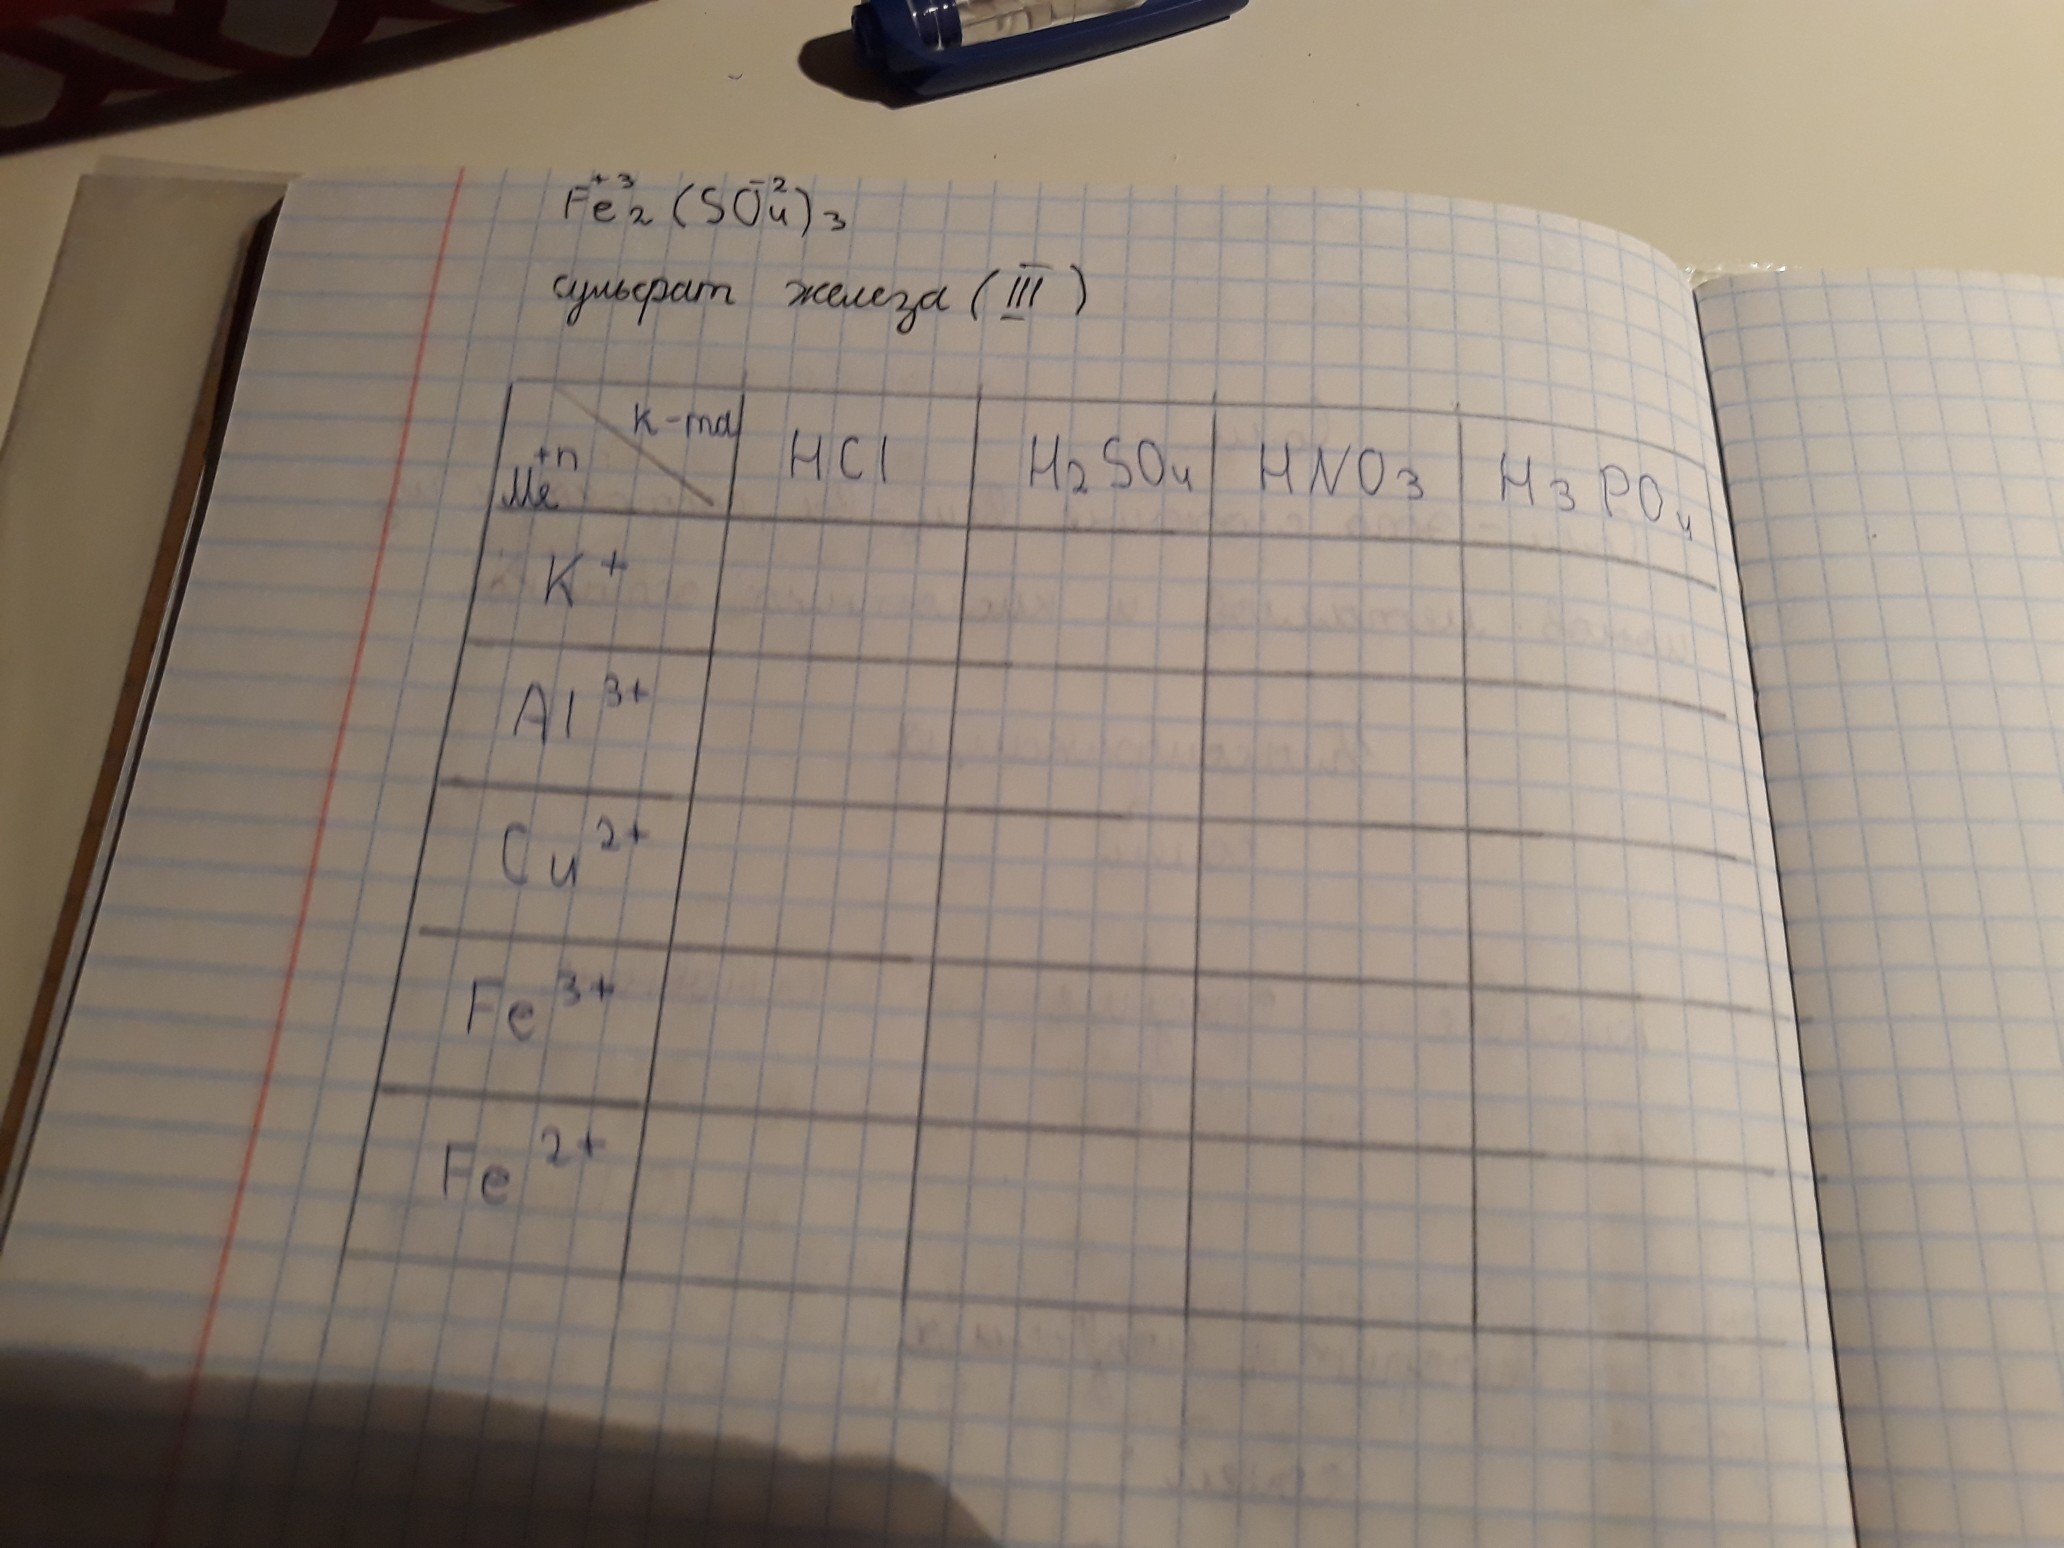 Fe⁺³₂(SO₄⁻²)₃
сульфат железа (III)
к-та
Me⁺ⁿ
HCl H₂SO₄ HNO₃ H₃PO₄
K⁺
Al³⁺
Cu²⁺
Fe³⁺
Fe²⁺